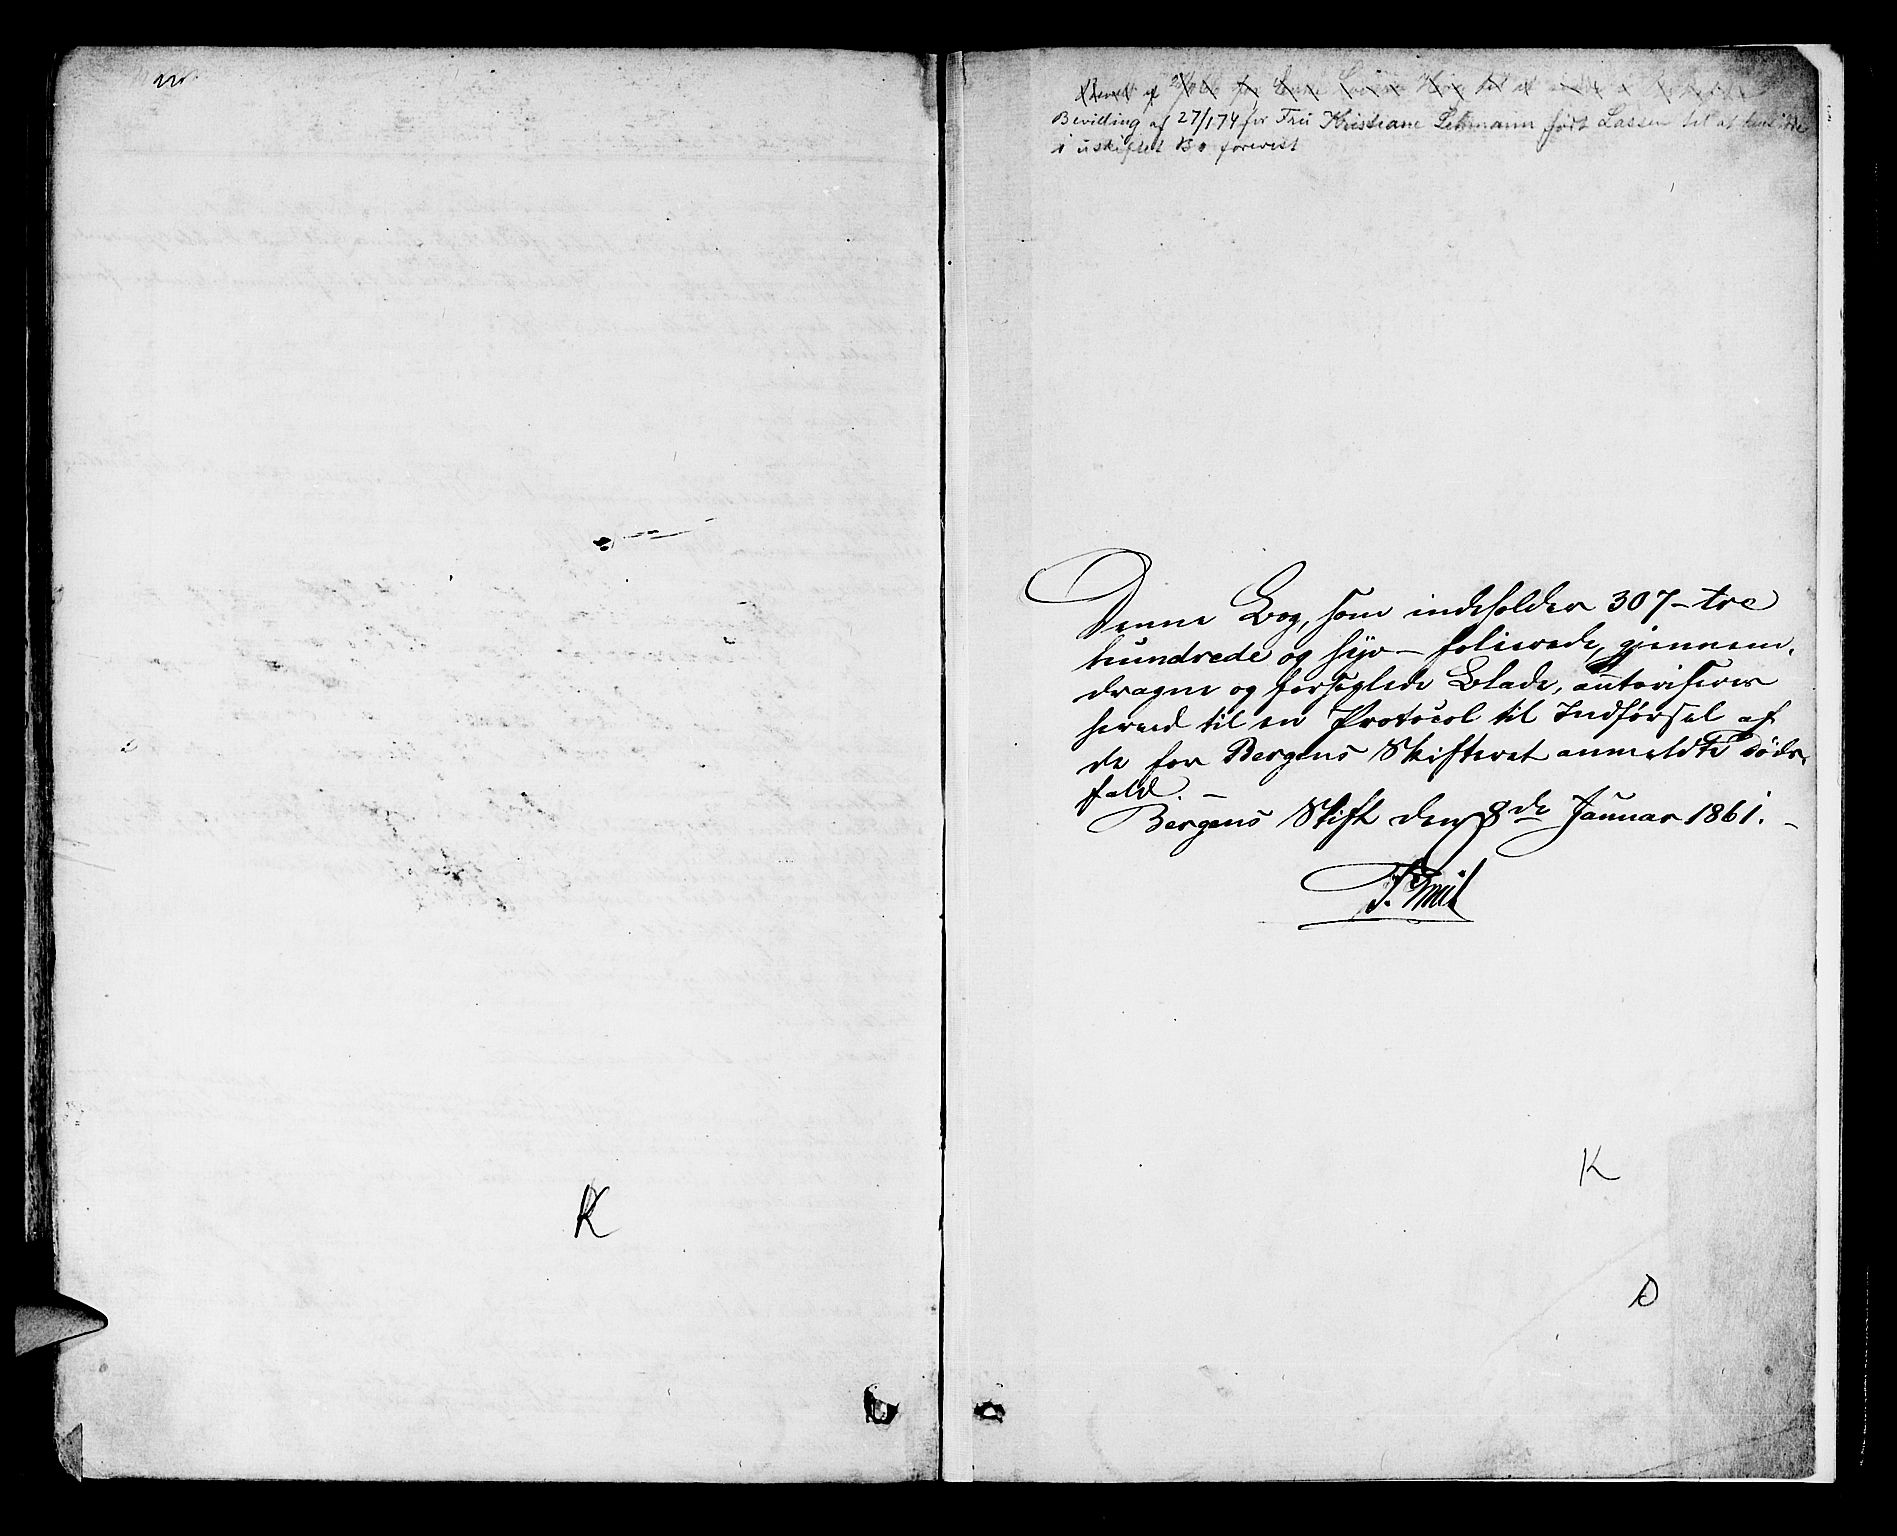 Bevilling af 27/1 74 for Fru Kristiane Lehmann født Lassen til at hensidde
i uskiftet Bo forevist
Denne Bog, som indeholder 307 - tre
hundrede og syv - folierede, gjennem-
dragne og forseglede Blade, autoriseres
herved til en Protocol til Indførsel af
de for Bergens Skifteret anmeldte Døds-
fald. -
Bergens Stift den 8de Januar 1861. -
K
K
D